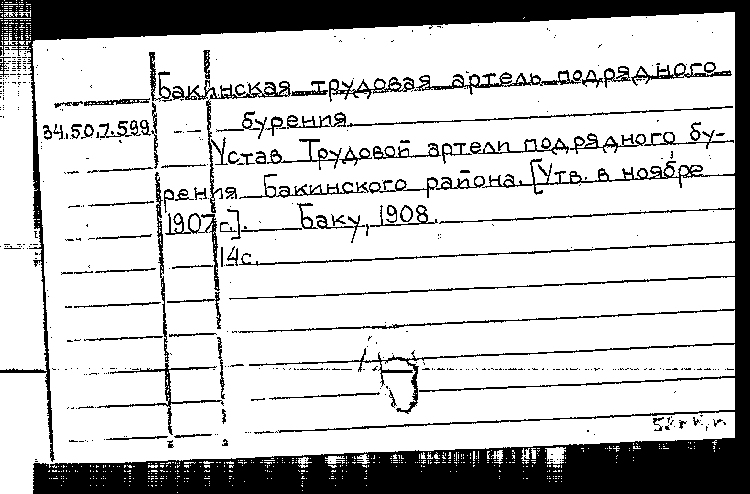 Бакинская трудовая артель подрядного
34.50.7.599. бурения.
Устав Трудовой артели подрядного бу-
рения Бакинского района. [Утв. в ноябре
1907 г.]. Баку, 1908.
14с.